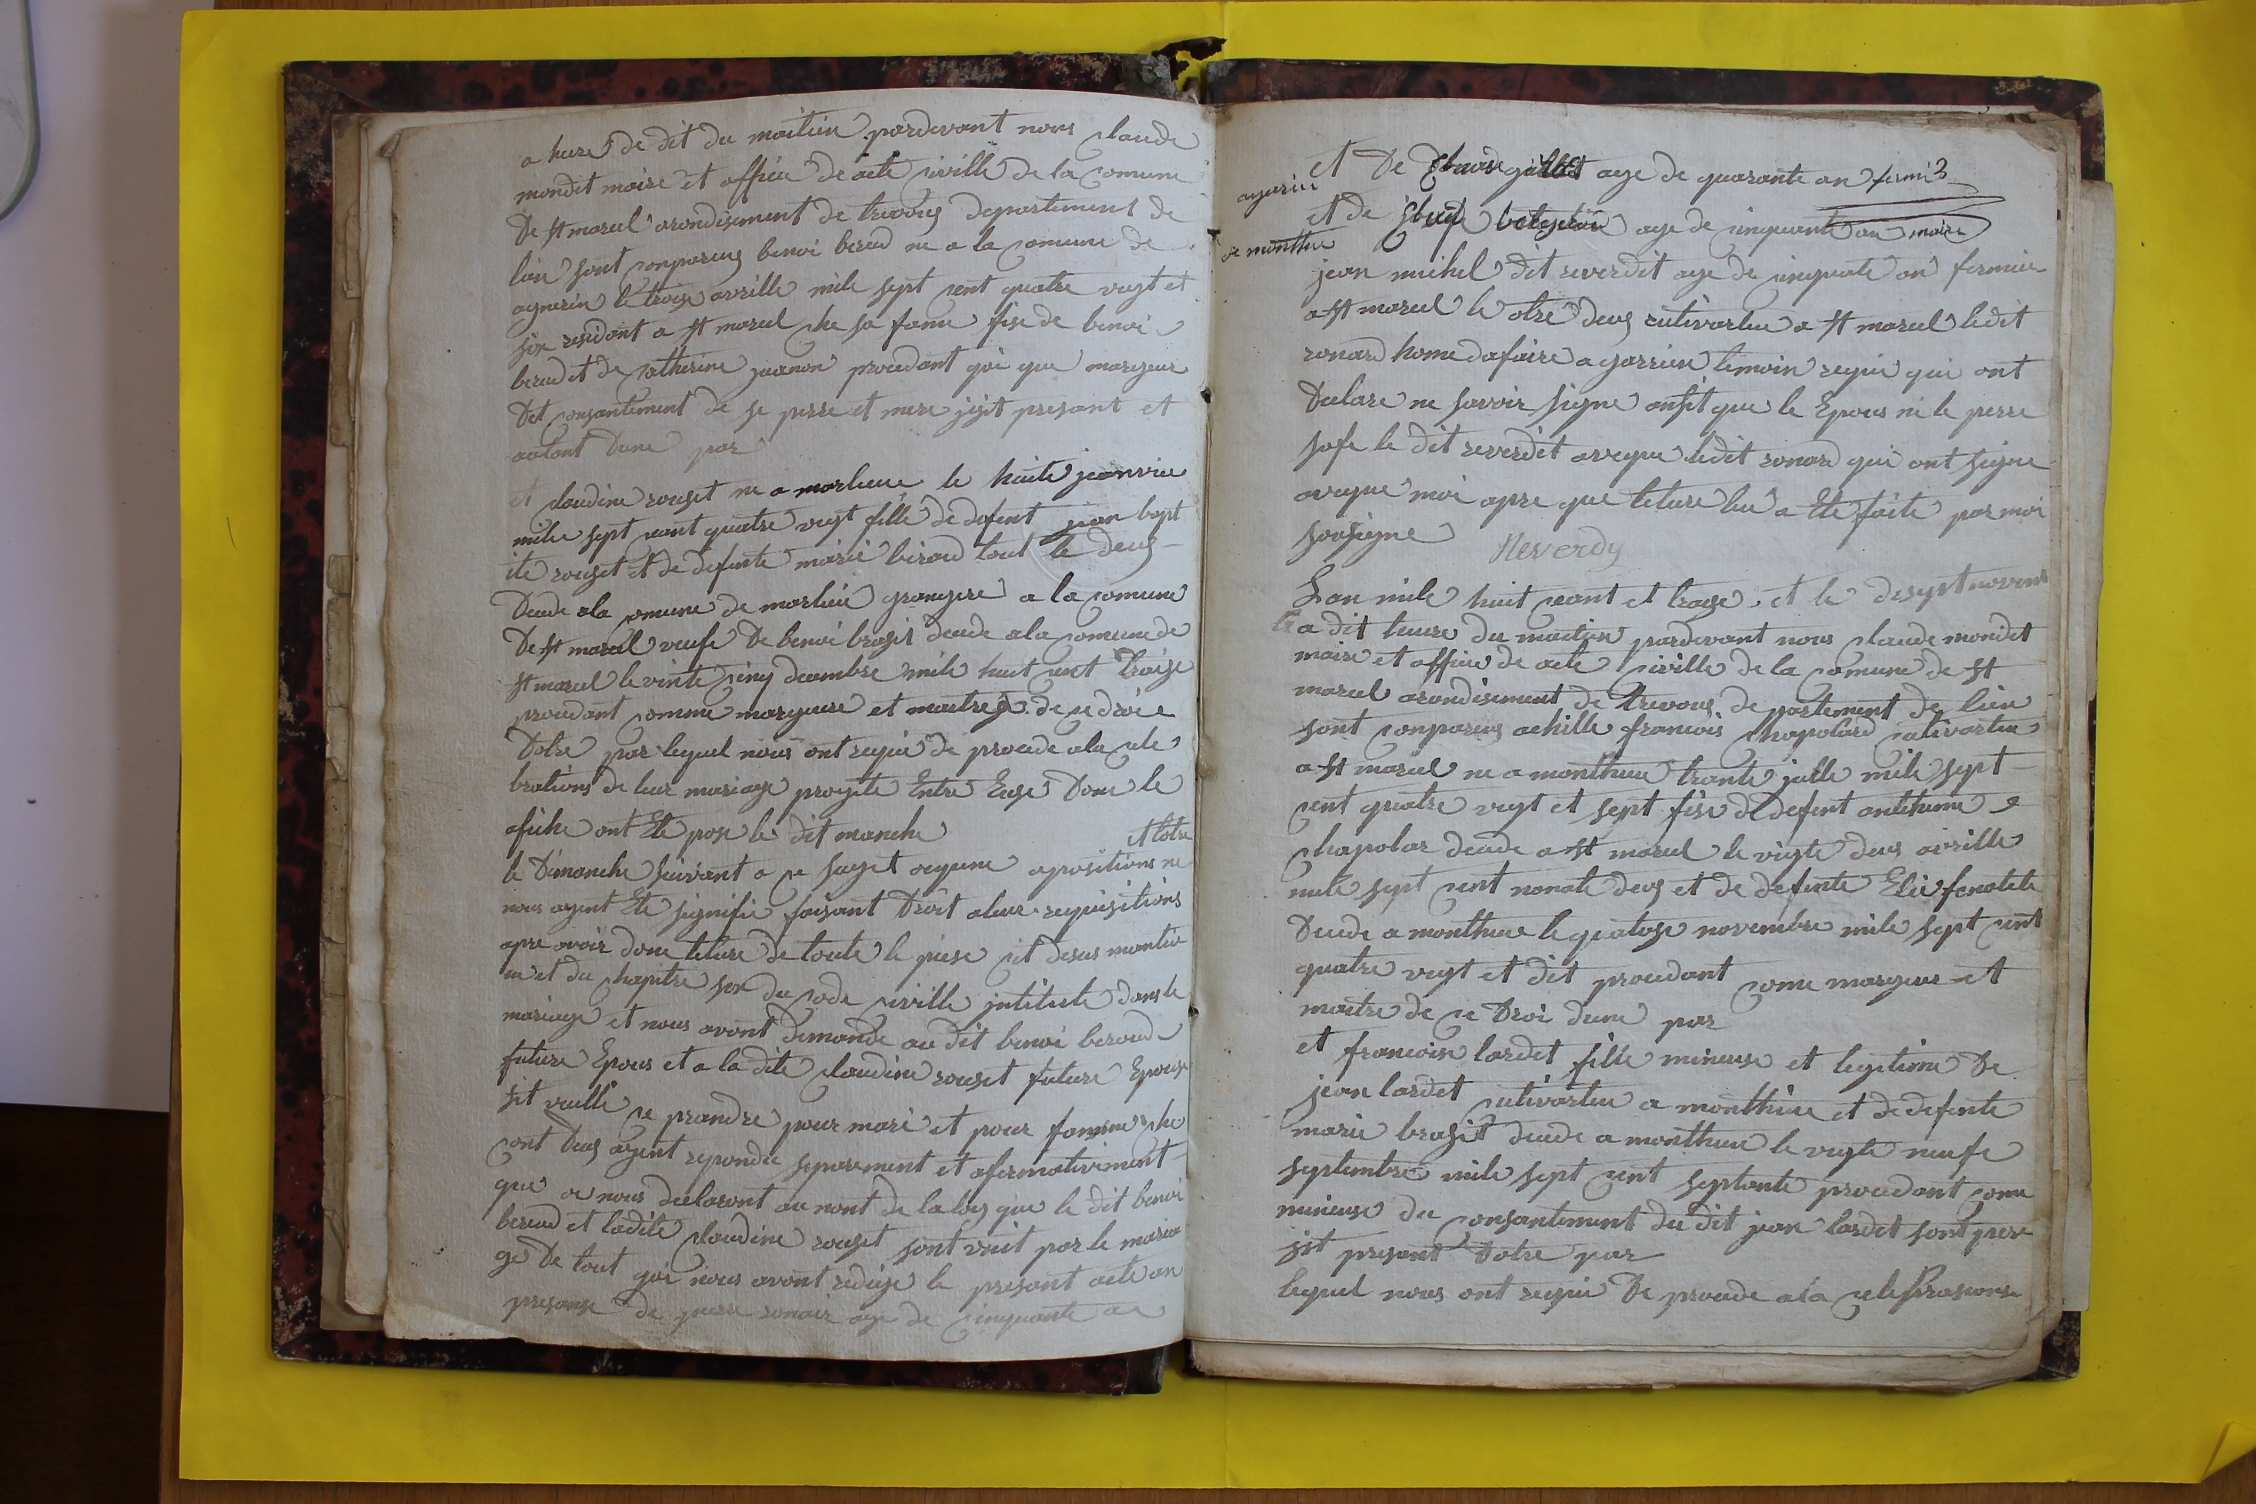 a hure de dit du maitin pardevant nous claude
mondet maire et officie de acte civille de la comune
De st marcel arondisement de trevous departement de
lain sont conparus benoi beraud ne a la comune de
agnerin le troise avrille mile sept cent quatre vegt et
six residant a st marcel che sa fame fise de benoi
beraud et de catherine juenon procedant qoi que margeur
Det consantement de se perre et mere jsit presant et
autant Dune par
et claudine rouset ne a marlieue le huite jeanvie
mile sept cent quatre vegt fille de defent jean bapt
ite rouset et de defente marie beraud tout le deus
Decede ala comune de marlieu grangere a la comune
De st marcel veufe De benoi brasit decede ala comune de
st marcel le vinte cinq decembre mile huit cent traise
procedant comme margeure et maitres de ce droi e
Dotre par lequel nous ont requi de procede ala cele
brations de leur mariage progete Entre Euse Done le
afiche ont Ete pose le dit manche
et lotre
le Dimanche suivant a ce suget auqune apositions ne
nous ayent Ete signifie faisant Droit aleur requisitions
apre avoir done leture de toute le piese cit desus mantio
ne et du chapitre six du code civille jntitule dans le
mariage et nous avont demande au dit benoi beraud
future Epous et a la dite claudine rouset future Epouse
sit veulle ce prandre pour mari et pour famme che
cont Deus ayent repondu separement et afirmativement
que a nous declaront au nont de la loy que le dit benoi
beraud et ladite claudine rouset sont unit par le maria
ge De tout qoi nous avont redige le presant acte an
presanse de pierre ronair age de cinquante an
et De claude gillet age de quarante an fermie
agnerin
et de age de cinquante an maire
de monthue
jean michel dit reverdit age de cinquante an fermie
a st marcel le otre deus cutivarteu a st marcel ledit
ronard home dafaire a garrien temoin requi qui ont
Declare ne savoir signe ansit que le Epous ni le perre
sofe le dit reverdit aveque ledit ronard qui ont signe
aveque moi apre que leture lui a Ete faite par moi
sousigne Reverdy
Lan mile huit ceant et traise et le desept novem
a dit heure du maitin pardevant nous claude mondet
maire et officie de acte civille de la comune de st
marcel arondisement de trevous departement de lien
sont conparus achille francois chapolard cutivarteu
a st marcel ne a monthieu trante julle mile sept
cent quatre vegt et sept fise de defent anthime
chapolar decede a st marcel le vegte deus avrille
mile sept cent nonate deus et de defente
Decede a monthieu le quatose novembre mile sept cent
quatre vegt et dit procedant come margeur et
maitre de ce Droi dune par
et francoise lardet fille mineuse et legitime De
jean lardet cutivarteu a monthieu et de defente
marie brasit decede a monthieu le vegte neufe
septembre mile sept cent septante procedant come
mineuse du consantement du dit jean lardet sont pere
jsit presant Dotre par
lequel nous ont requi De procede ala celebrasions